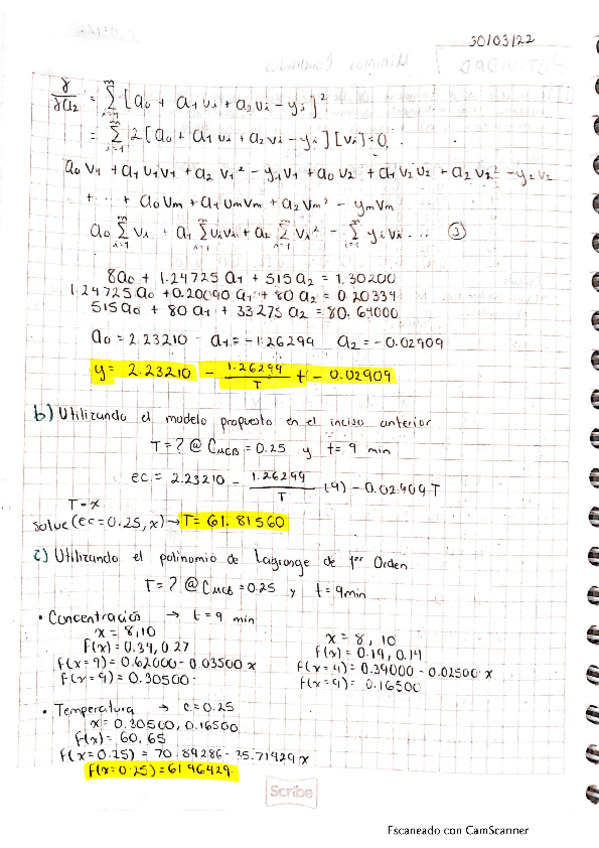 30/03/22
γ/γa2 = Σ [a0 + a1 ui + a2 vi - yi]²
= Σ 2[a0 + a1 ui + a2 vi - yi][vi]=0,
a0 v1 + a1 u1v1 + a2 v1² - y1v1 + a0 v2 + a1 v2 u2 + a2 v2² - y2 v2
+ ... + a0 vm + a1 um vm + a2 vm² - ym vm
a0 Σ vi + a1 Σ ui vi + a2 Σ vi² - Σ yi vi ... ③
8a0 + 1.24725 a1 + 515 a2 = 1.30200
1.24725 a0 + 0.20090 a1 + 80 a2 = 0.20334
515 a0 + 80 a1 + 33275 a2 = 80.64000
a0 = 2.23210 a1 = -1.26299 a2 = -0.02909
y = 2.23210 - 1.26299/T t - 0.02909
b) Utilizando el modelo propuesto en el inciso anterior
T = ? @ CMCB = 0.25 y t = 9 min
ec = 2.23210 - 1.26299/T (9) - 0.02909 T
T = x
solve (ec = 0.25, x) → T = 61.81560
c) Utilizando el polinomio de Lagrange de 1er Orden
T = ? @ CMCB = 0.25 y t = 9min
• Concentración → t = 9 min
x = 8,10 x = 8, 10
f(x) = 0.34, 0.27 f(x) = 0.19, 0.14
f(x = 9) = 0.62000 - 0.03500 x f(x = 9) = 0.39000 - 0.02500 x
f(x = 9) = 0.30500 f(x = 9) = 0.16500
• Temperatura → c = 0.25
x = 0.30500, 0.16500
f(x) = 60, 65
f(x = 0.25) = 70.89286 - 35.71429 x
f(x = 0.25) = 61.96429
Scribe
Escaneado con CamScanner